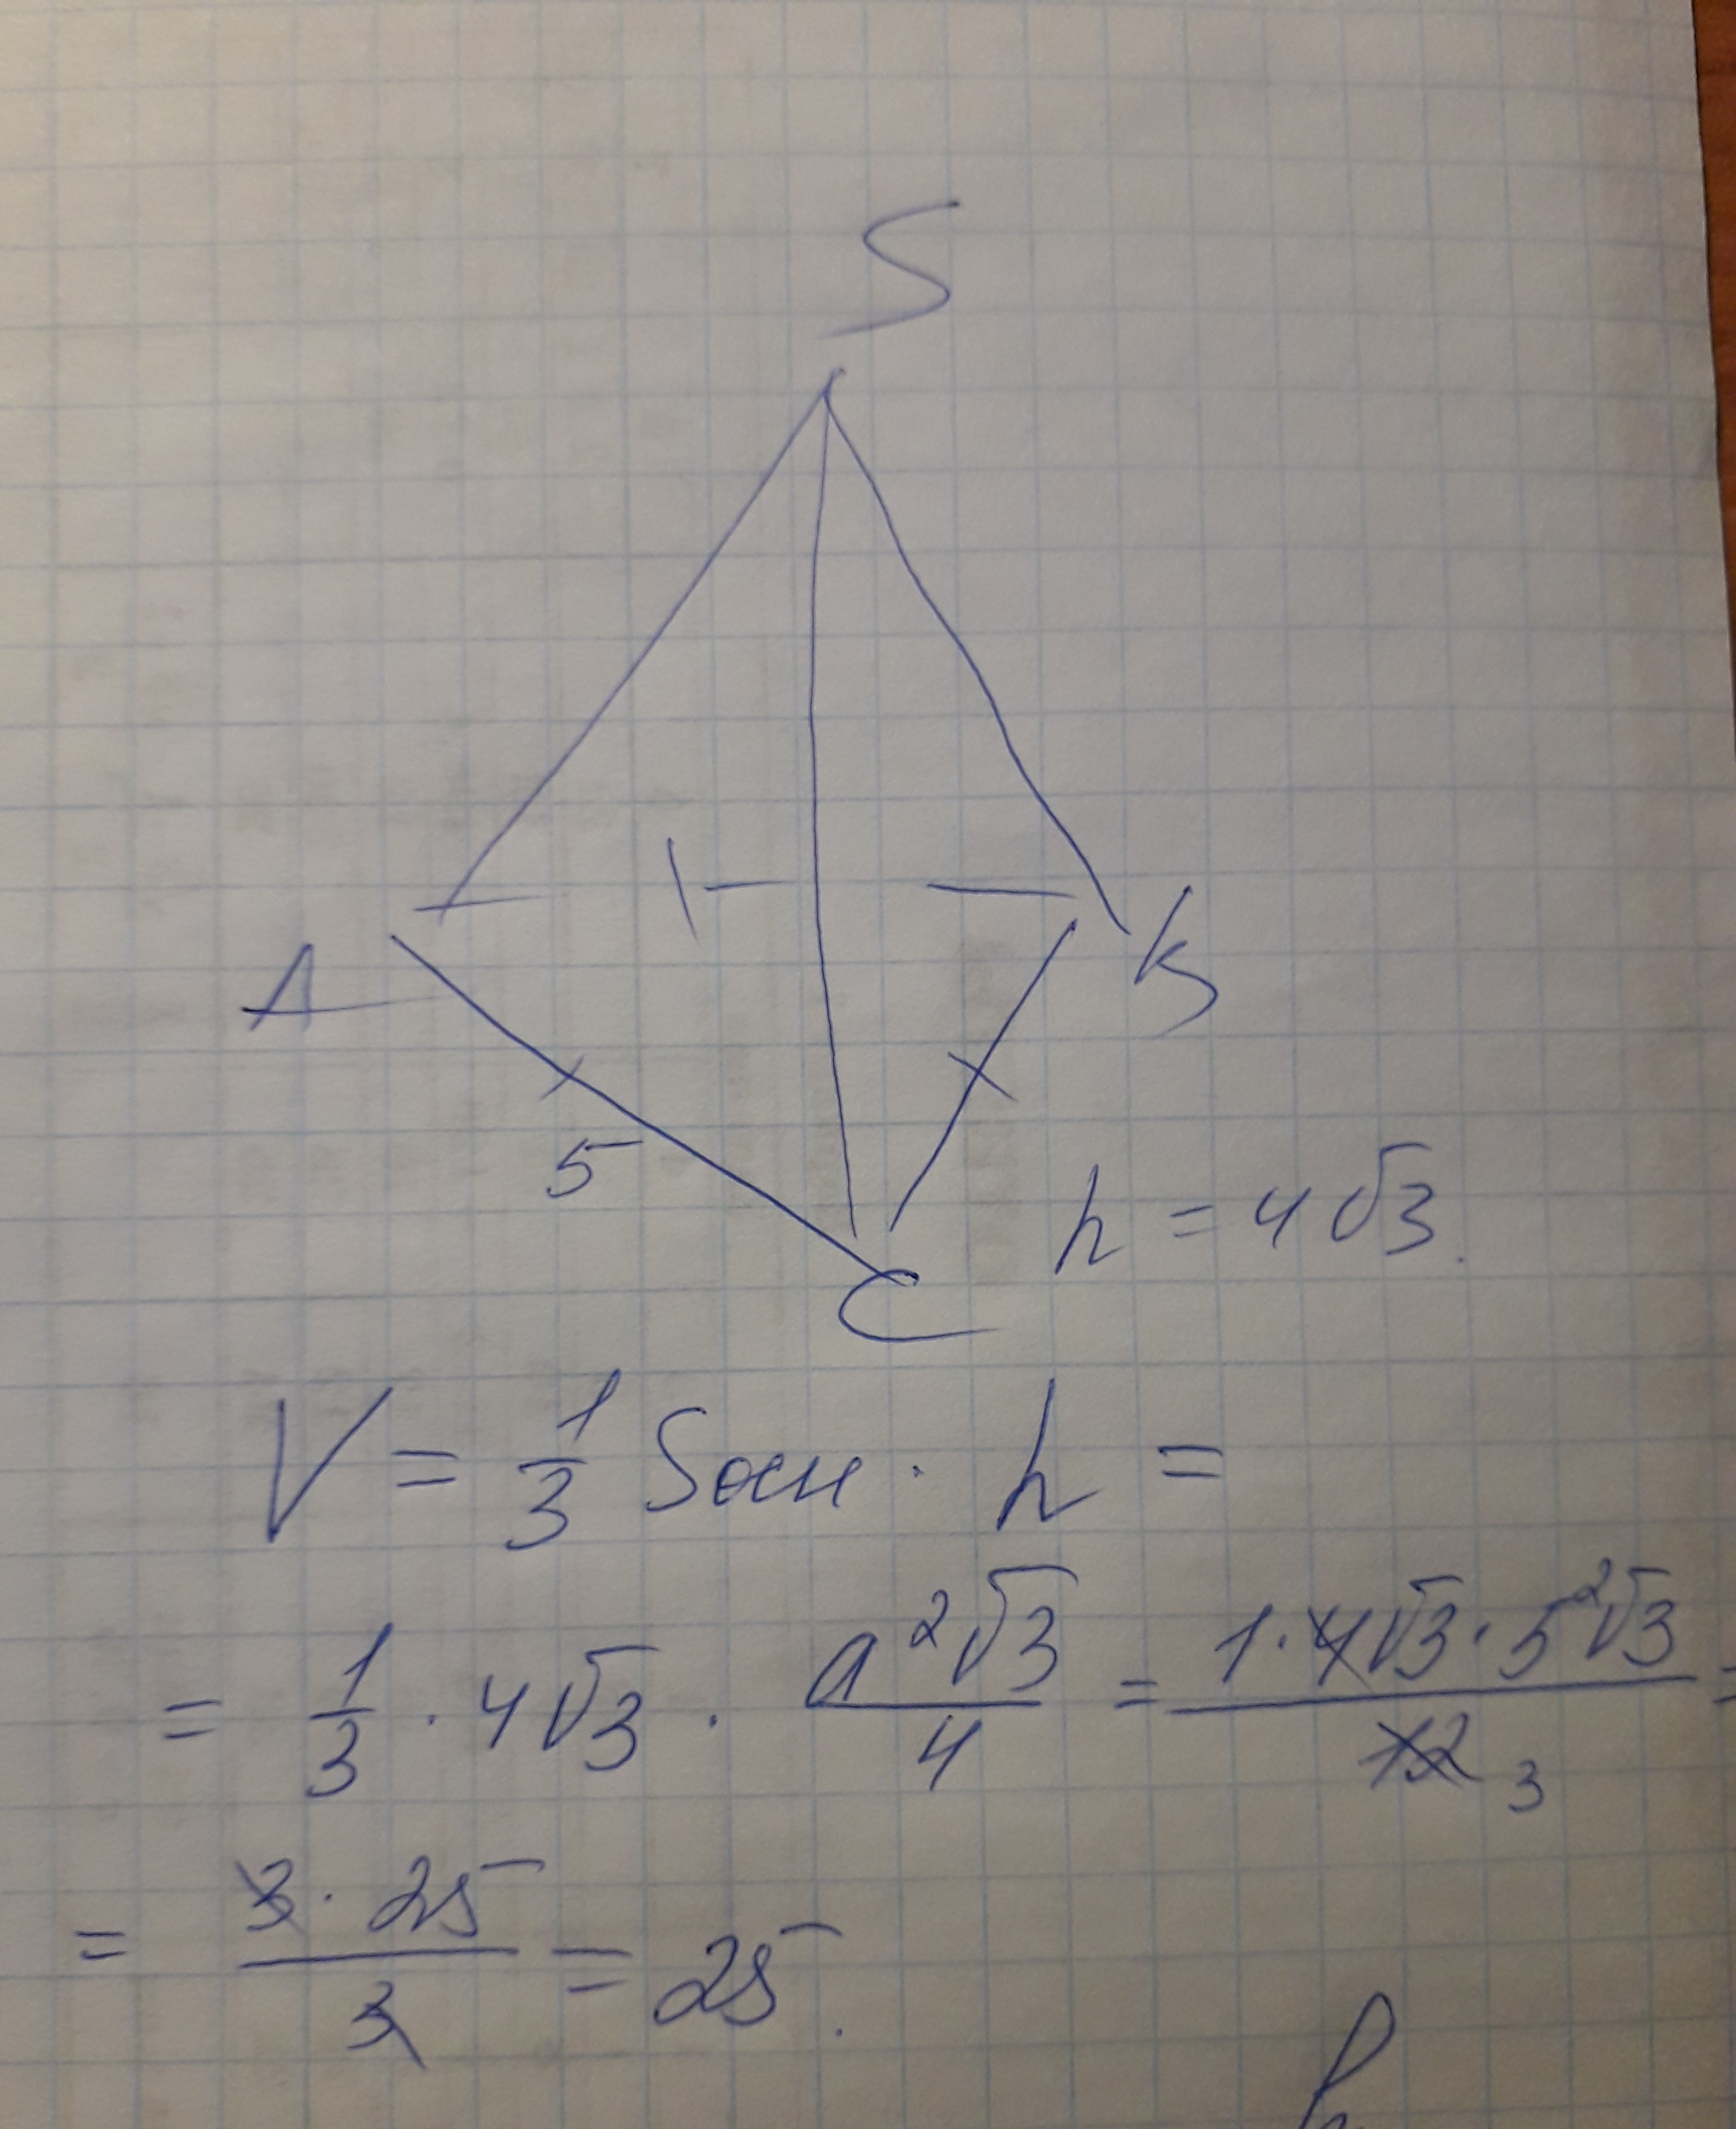 S
A
B
5
C
h = 4√3.
V = 1/3 Sосн · h =
= 1/3 · 4√3 · a²√3/4 = 1·4√3·5²√3/12 3 =
= 3·25/3 = 25.